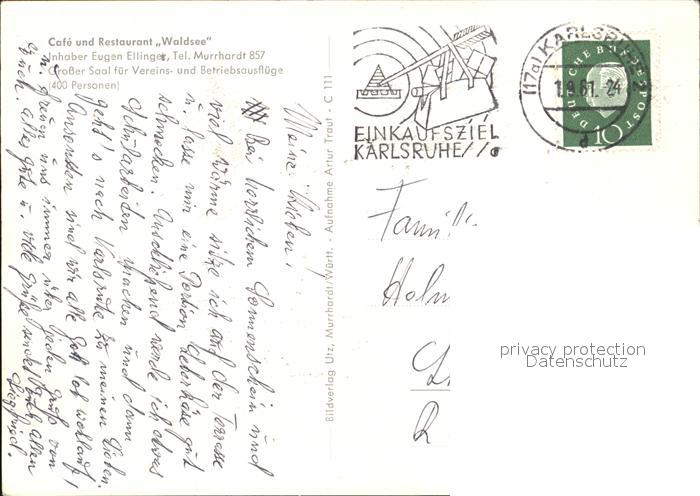 Café und Restaurant „Waldsee"
Inhaber Eugen Ellinger, Tel. Murrhardt 857
Großer Saal für Vereins- und Betriebsausflüge
(400 Personen)
Meine Lieben!
Bei herrlichem Sonnenschein und
viel Wärme sitze ich auf der Terrasse
u. lasse mir eine Portion Leberkäse gut
schmecken. Anschließend werde ich etwas
Schularbeiten machen und dann
geht's nach Karlsruhe zu meinen Lieben.
Ansonsten sind wir alle Gott lob wohlauf,
u. freuen uns immer über jeden Gruß von
Euch. Alles Gute u. viele Grüße sendet Euch allen
Siegfried.
Bildverlag Utz, Murrhardt/Württ. - Aufnahme Artur Traut - C 111
EINKAUFSZIEL
KARLSRUHE
(17a) KARLSRUHE 2
1.9.61. 24
d
DEUTSCHE BUNDESPOST
10
Famili
Holm
privacy protection
Datenschutz